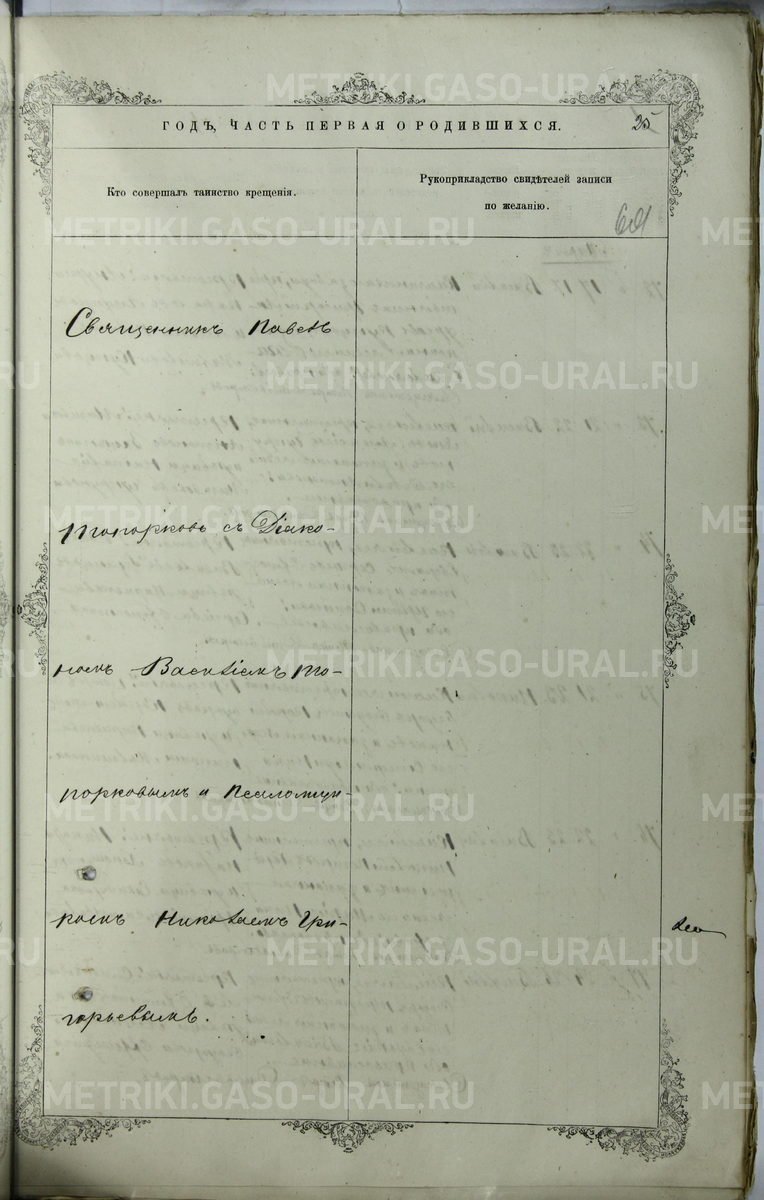 ГОДЪ, ЧАСТЬ ПЕРВАЯ О РОДИВШИХСЯ.
25
Кто совершалъ таинство крещенія.
Рукоприкладство свидѣтелей записи
по желанію.
Священникъ Павелъ
Топорковъ съ Діако-
номъ Василіемъ То-
порковымъ и Псаломщи-
комъ Николаемъ Гри-
горьевымъ.
METRIKI.GASO-URAL.RU